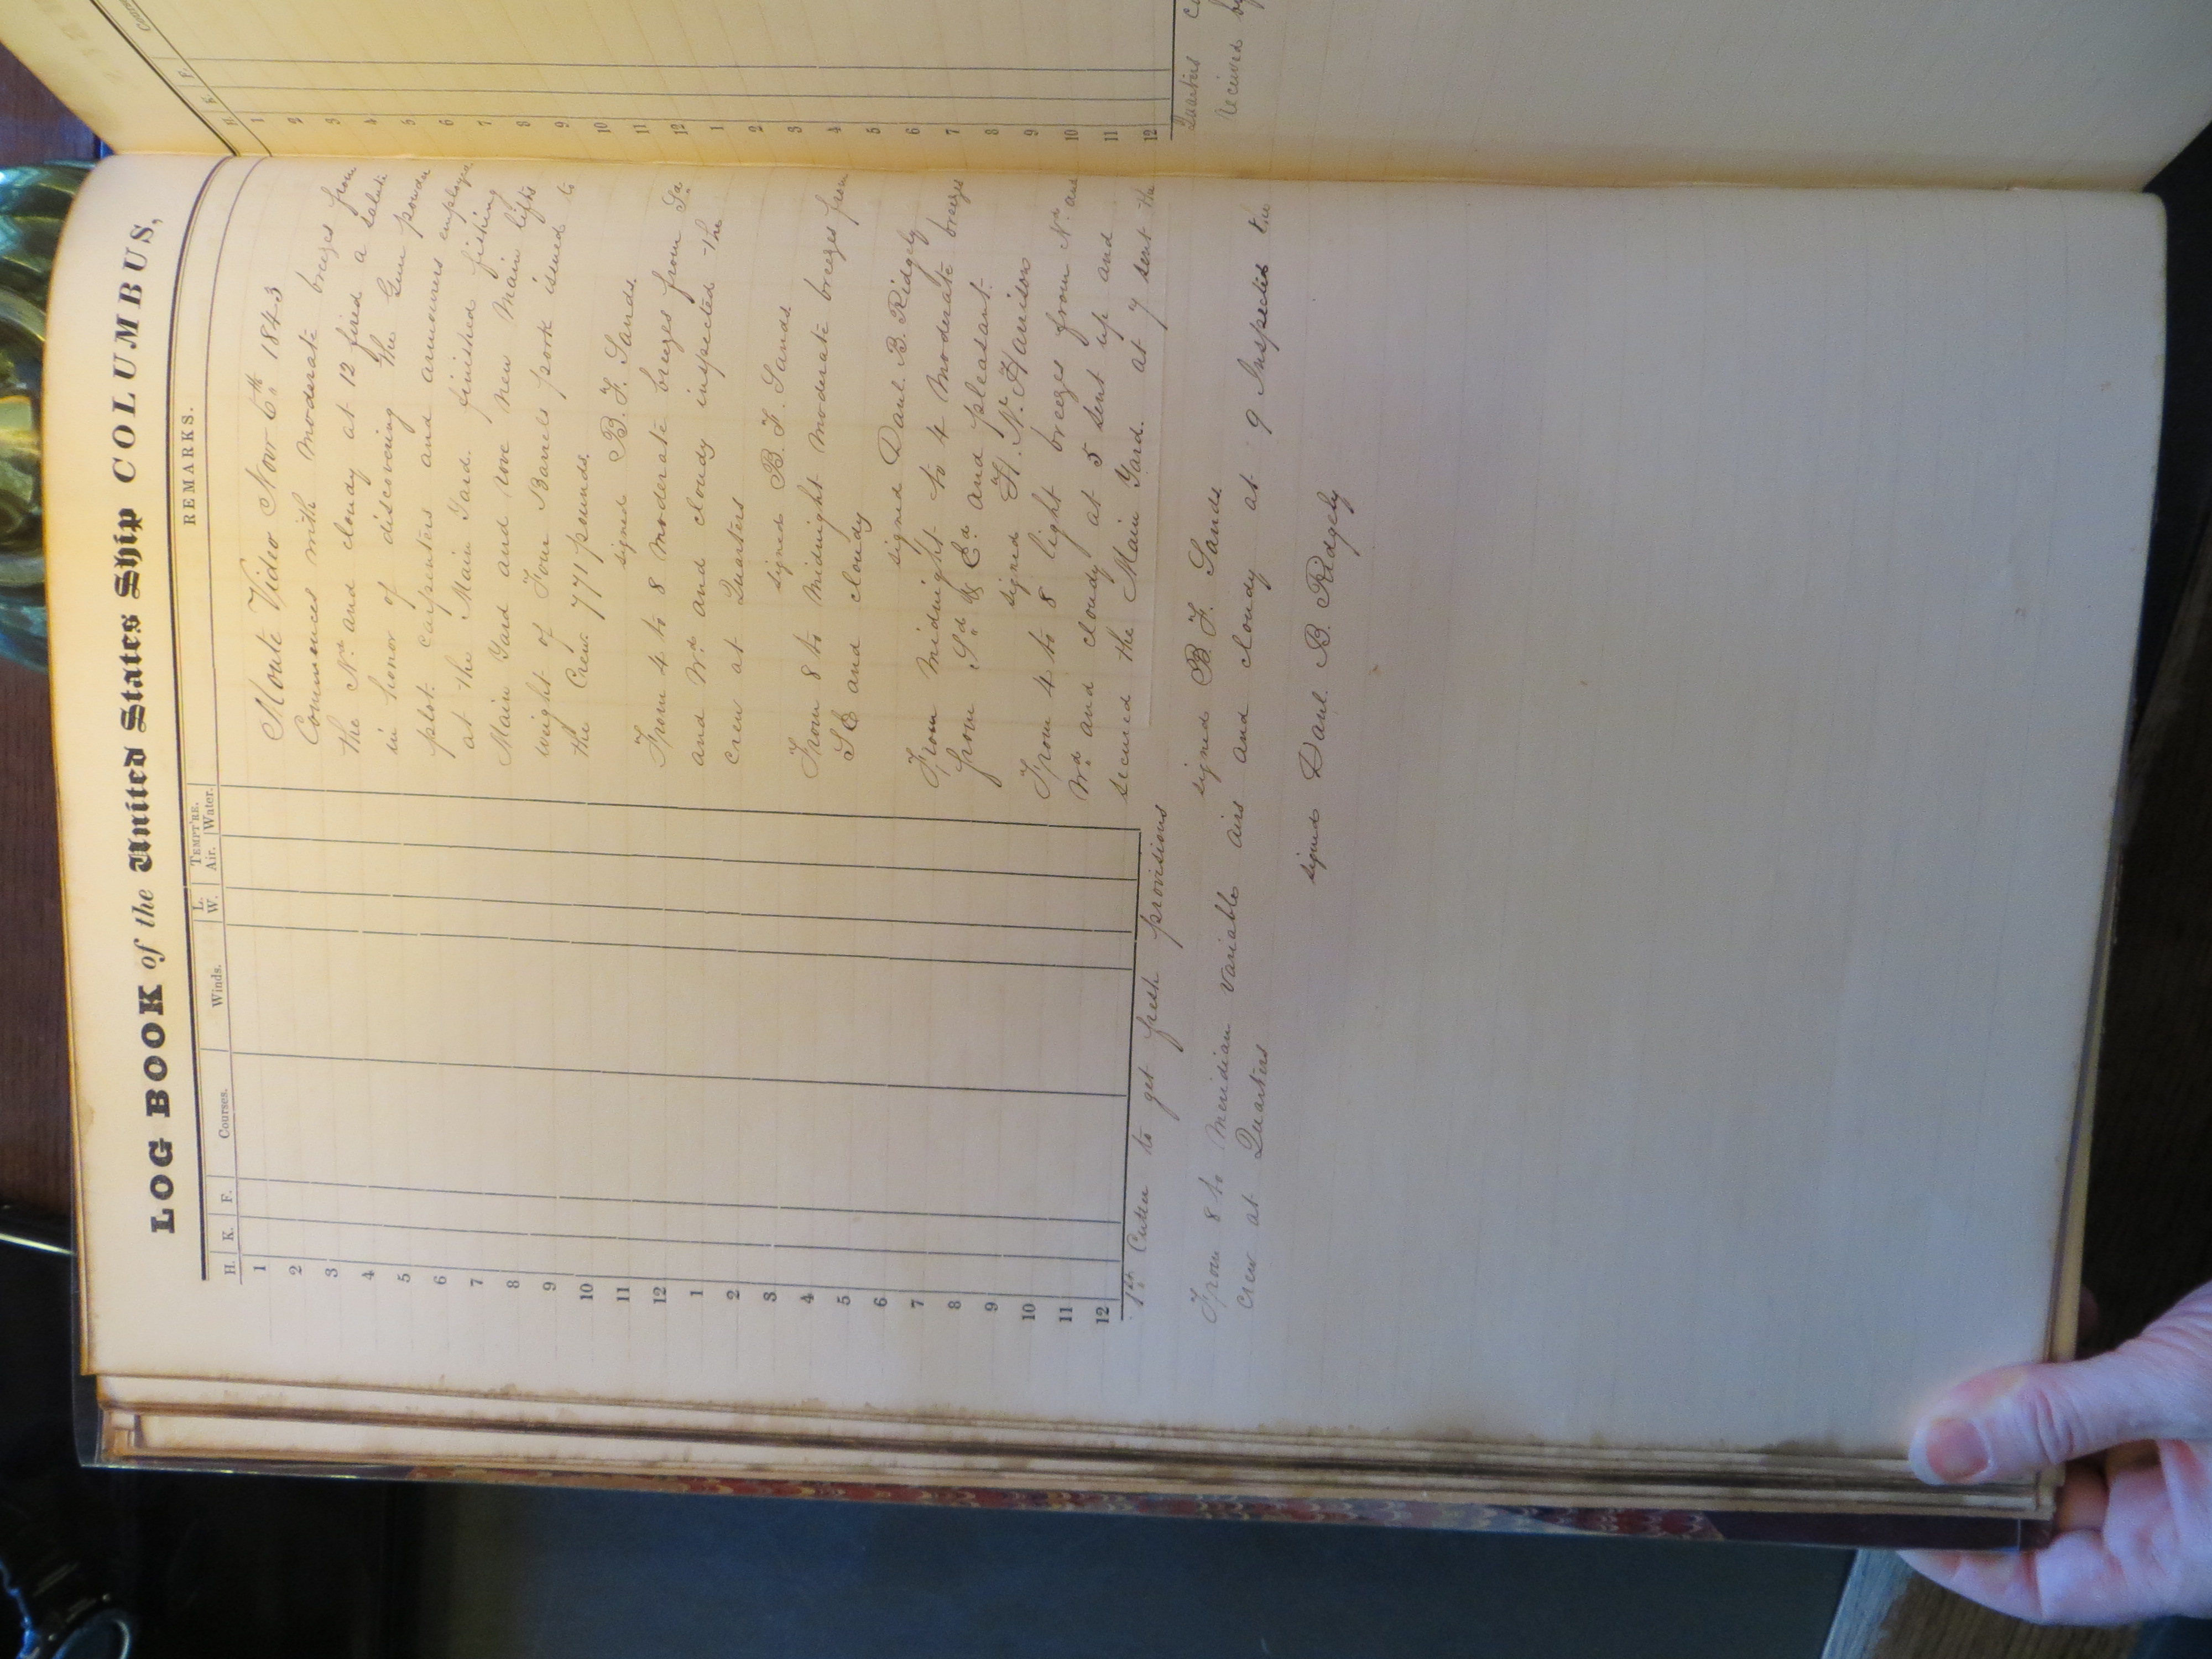 LOG BOOK of the United States Ship COLUMBUS,
H. K. F. Courses. Winds. L. W. TEMPT'RE. Air. Water. REMARKS.
1
2
3
4
5
6
7
8
9
10
11
12
1
2
3
4
5
6
7
8
9
10
11
12
Monte Video Nov 6th 1843
Commences with moderate breezes from
the Nd and cloudy at 12 fired a salute
in honor of discovering the Gun powder
plot. carpenters and armourers employed
at the Main Yard. finished fishing
Main Yard and rove new Main lifts
weight of Four Barrels pork issued to
the Crew 771 pounds.
signed B. F. Sands.
From 4 to 8 moderate breezes from Sd
and Wd and cloudy inspected the
crew at Quarters
signed B. F. Sands
From 8 to Midnight moderate breezes from
SE and cloudy
signed Danl. B. Ridgely
From Midnight to 4 moderate breezes
from Sd & Ed and pleasant.
signed H. N. Harrison
From 4 to 8 light breezes from Nd and
Wd and cloudy at 5 sent up and
secured the Main Yard. at 7 sent the
1st Cutter to get fresh provisions
signed B. F. Sands
From 8 to Meridian variable airs and cloudy at 9 Inspected the
crew at Quarters
signed Danl. B. Ridgely
H. K. F.
1
2
3
4
5
6
7
8
9
10
11
12
1
2
3
4
5
6
7
8
9
10
11
12
Quarters
Received by